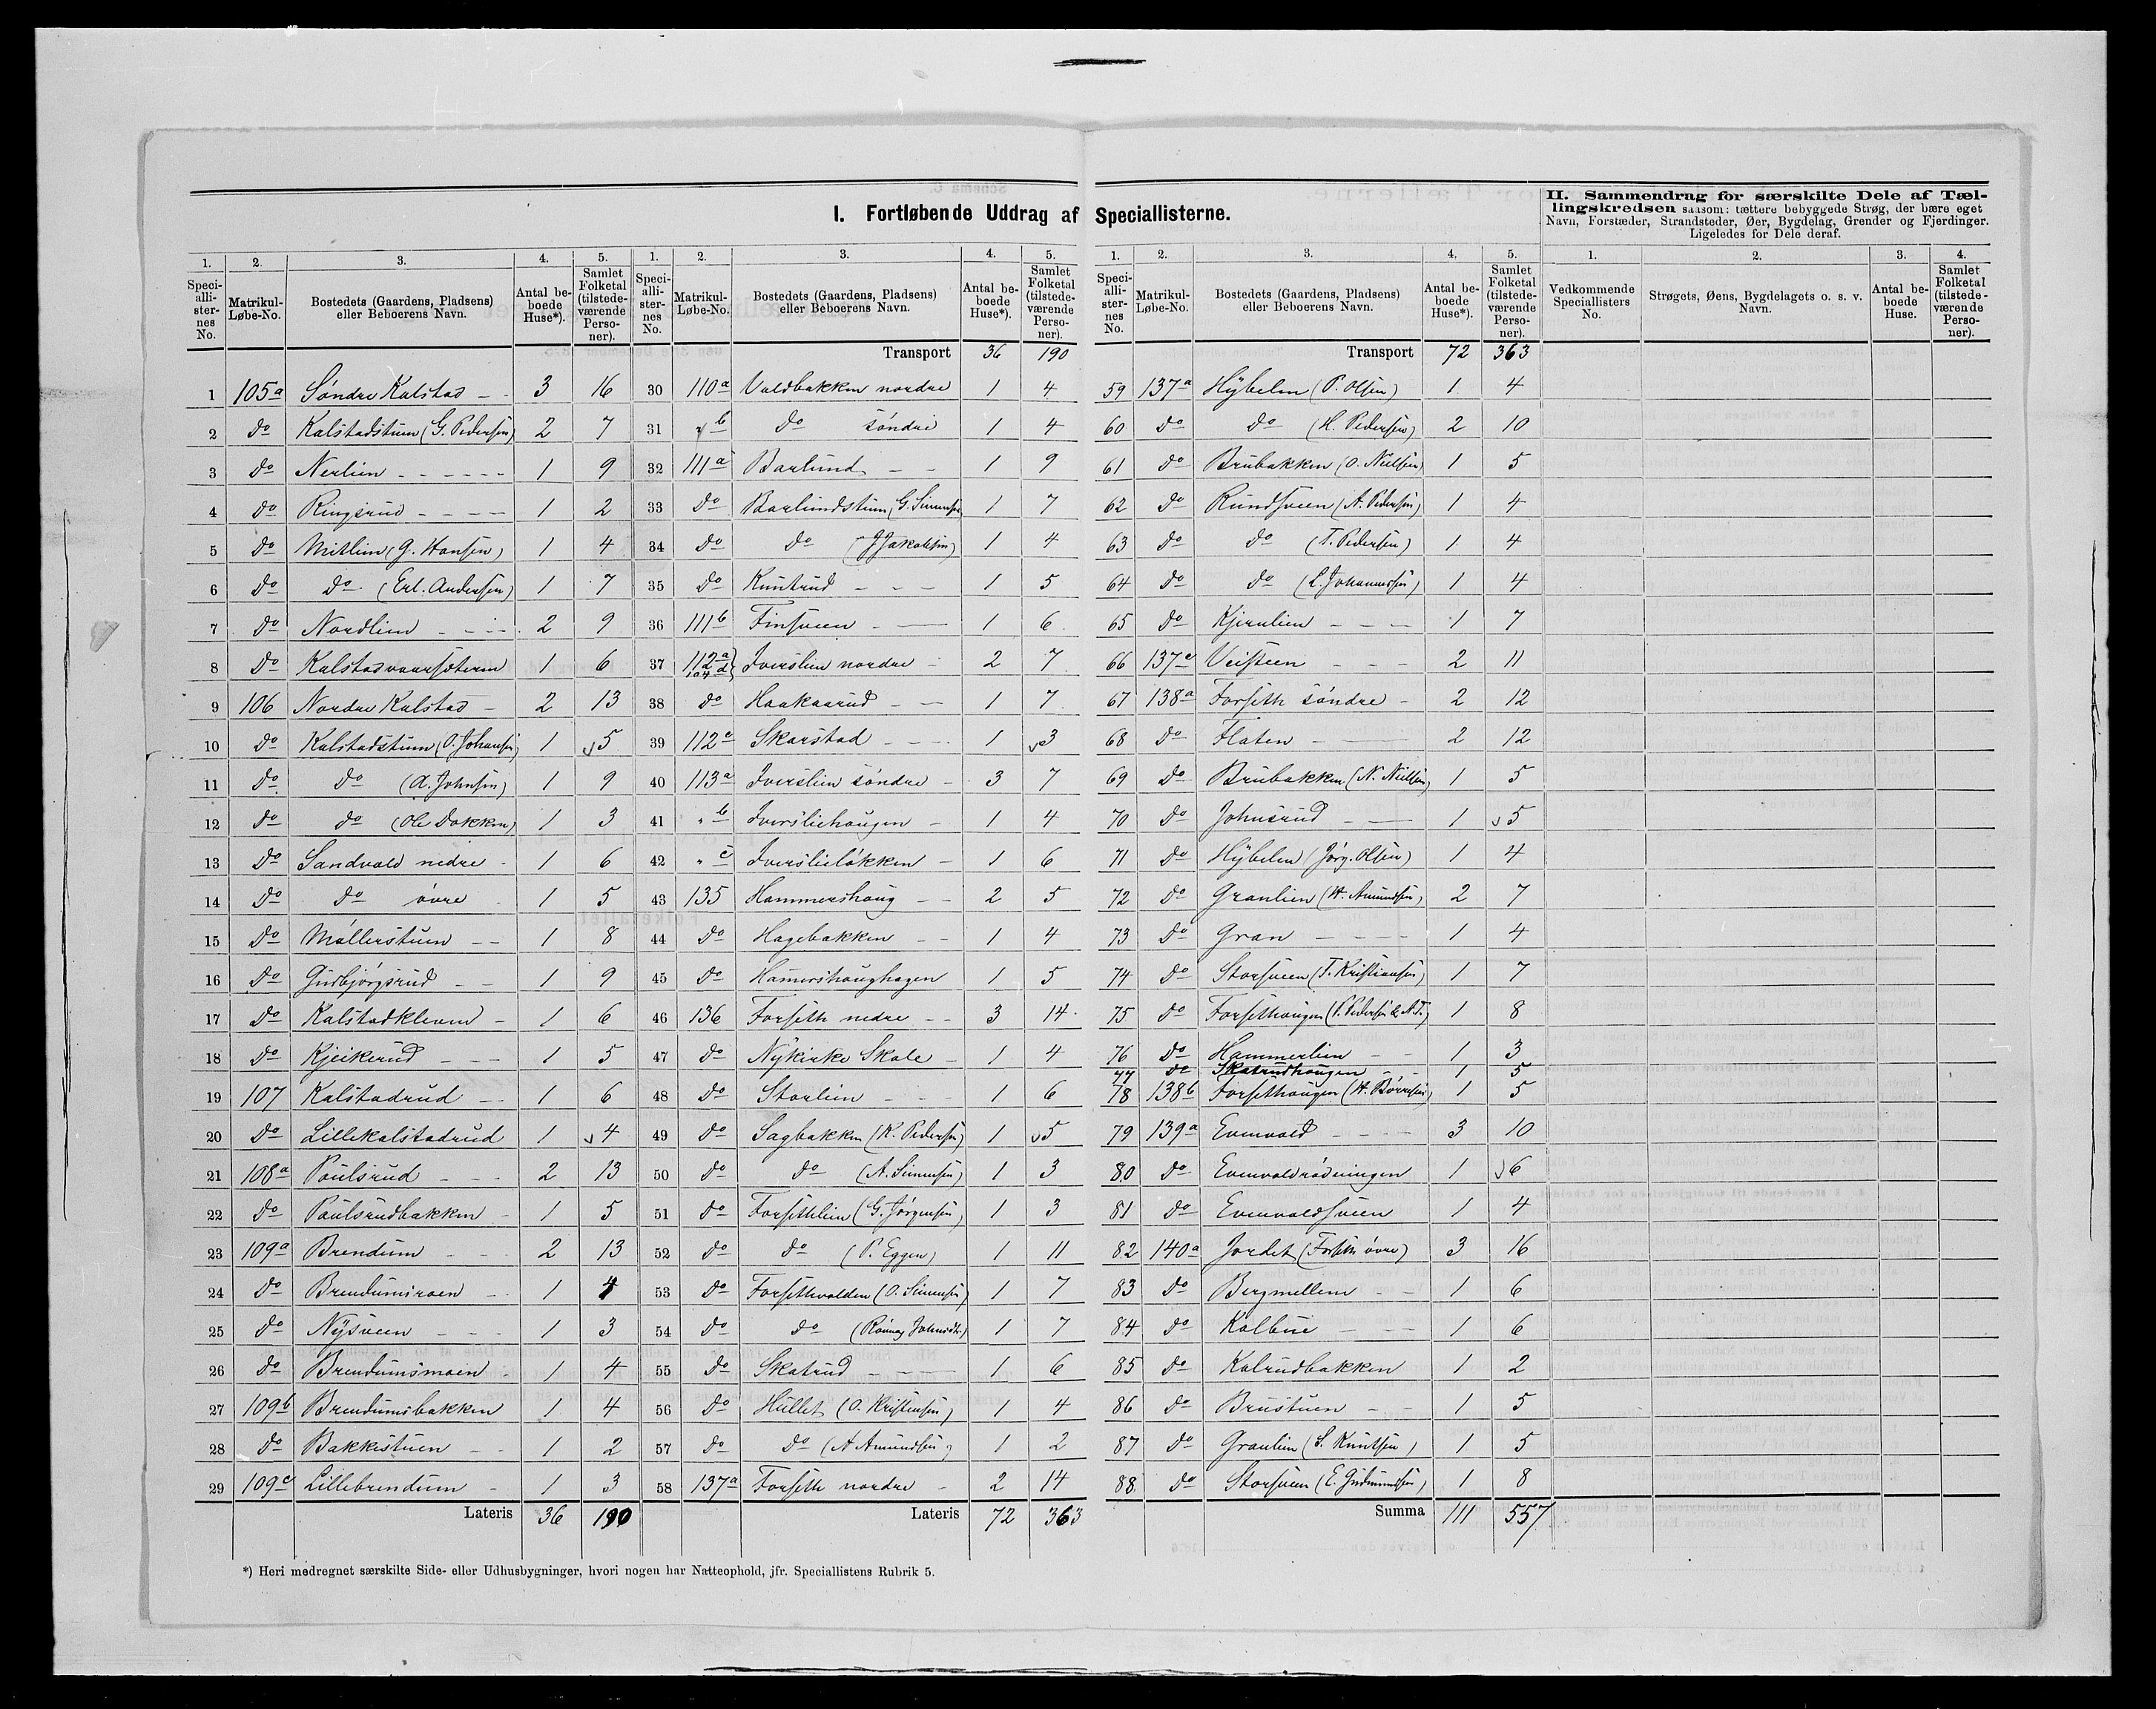 I. Fortløbende Uddrag af Speciallisterne.
1. 2. 3. 4. 5.
Speciallisternes No. Matrikul-Løbe-No. Bostedets (Gaardens, Pladsens) eller Beboerens Navn. Antal beboede Huse*). Samlet Folketal (tilstedeværende Personer).
1 105a Søndre Kalstad 3 16
2 do Kalstadstuen (G. Pedersen) 2 7
3 do Nerlien 1 9
4 do Ringsrud 1 2
5 do Mitlien (G. Hansen) 1 4
6 do do (Erl. Andersen) 1 7
7 do Nordlien 2 9
8 do Kalstadvaarsæteren 1 6
9 106 Nordre Kalstad 2 13
10 do Kalstadstuen (O. Johansen) 1 5
11 do do (A. Johnsen) 1 9
12 do do (Ole Dokken) 1 3
13 do Sandvold nedre 1 6
14 do do øvre 1 5
15 do Møllerstuen 1 8
16 do Gudbjørgsrud 1 9
17 do Kalstadkleven 1 6
18 do Kjeikerud 1 5
19 107 Kalstadrud 1 6
20 do Lillekalstadrud 1 4
21 108a Poulsrud 2 13
22 do Poulsrudbakken 1 5
23 109a Brendum 2 13
24 do Brendumsroen 1 4
25 do Nysveen 1 3
26 do Brendumsmoen 1 4
27 109b Brendumsbakken 1 4
28 do Bakkestuen 1 2
29 109c Lillebrendum 1 3
Lateris 36 190
1. 2. 3. 4. 5.
Speciallisternes No. Matrikul-Løbe-No. Bostedets (Gaardens, Pladsens) eller Beboerens Navn. Antal beboede Huse*). Samlet Folketal (tilstedeværende Personer).
Transport 36 190
30 110a Voldbakken nordre 1 4
31 " b do søndre 1 4
32 111a Barlund 1 9
33 do Barlundstuen (G. Simensen 1 7
34 do do (J Jakobsen) 1 4
35 do Knutrud 1 5
36 111b Finsveen 1 6
37 112a 104d Iverslien nordre 2 7
38 do Haakaarud 1 7
39 112c Skarstad 1 3
40 113a Iverslien søndre 3 7
41 " b Iversliehaugen 1 4
42 " c Iverslieløkken 1 6
43 135 Hammershaug 2 5
44 do Hagebakken 1 4
45 do Hamershaughagen 1 5
46 136 Forseth nedre 3 14
47 do Nykirke Skole 1 4
48 do Storlien 1 6
49 do Sagbakken (K. Pedersen) 1 5
50 do do (A. Simensen) 1 3
51 do Forsethlien (G. Jørgensen) 1 3
52 do do (P. Eggen) 1 11
53 do Forsethvolden (O. Simensen) 1 7
54 do do (Rønnog Johnsdtr.) 1 7
55 do Skatrud 1 6
56 do Hullet (O. Kristensen) 1 4
57 do do (A Amundsen) 1 2
58 137a Forseth nordre 2 14
Lateris 72 363
1. 2. 3. 4. 5.
Speciallisternes No. Matrikul-Løbe-No. Bostedets (Gaardens, Pladsens) eller Beboerens Navn. Antal beboede Huse*). Samlet Folketal (tilstedeværende Personer).
Transport 72 363
59 137a Hybelen (P. Olsen) 1 4
60 do do (H. Pedersen) 2 10
61 do Brubakken (O. Nielsen) 1 5
62 do Rundsveen (A. Pedersen) 1 4
63 do do (T. Pedersen) 1 4
64 do do (L. Johannessen) 1 4
65 do Kjernlien 1 7
66 137c Veisteen 2 11
67 138a Forseth søndre 2 12
68 do Flaten 2 12
69 do Brubakken (N. Nielsen) 1 5
70 do Johnsrud 1 5
71 do Hybelen (Jørg. Olsen) 1 4
72 do Granlien (H. Amundsen) 2 7
73 do Gran 1 4
74 do Storsveen (T. Kristiansen) 1 7
75 do Forsethaugen (P. Pedersen & N.T.) 1 8
76 do Hammerlien 1 3
77 do Skatrudhaugen 1 5
78 138b Forsethaugen (H. Børresen) 1 5
79 139a Evenvold 3 10
80 do Evenvoldrødningen 1 6
81 do Evenvoldsveen 1 4
82 140a Jordet (Forseth øvre) 3 16
83 do Bergmellem 1 6
84 do Kolbue 1 6
85 do Kalrudbakken 1 2
86 do Brustuen 1 5
87 do Granlien (S. Knutsen) 1 5
88 do Storsveen (E. Gudmundsen) 1 8
Summa 111 557
II. Sammendrag for særskilte Dele af Tællingskredsen saasom: tættere bebyggede Strøg, der bære eget
Navn, Forstæder, Strandsteder, Øer, Bygdelag, Grender og Fjerdinger.
Ligeledes for Dele deraf.
1. 2. 3. 4.
Vedkommende Speciallisters No. Strøgets, Øens, Bygdelagets o. s. v. Navn. Antal beboede Huse. Samlet Folketal (tilstedeværende Personer).
*) Heri medregnet særskilte Side- eller Udhusbygninger, hvori nogen har Natteophold, jfr. Speciallistens Rubrik 5.